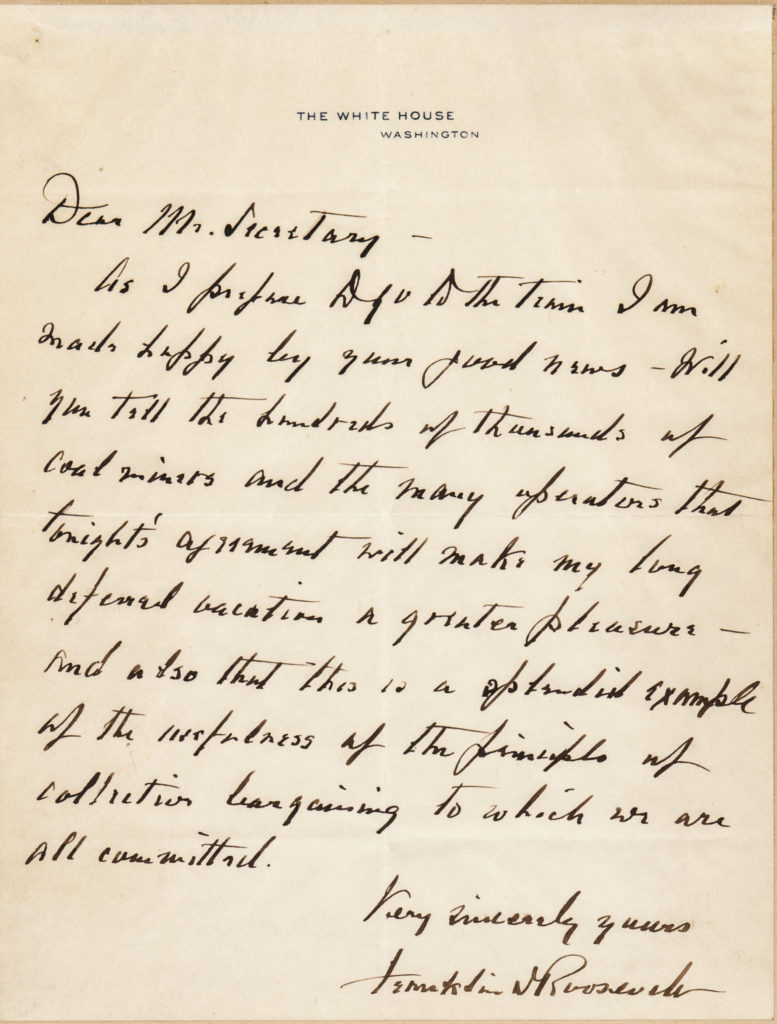 THE WHITE HOUSE
WASHINGTON
Dear Mr. Secretary –
As I prepare to go to the train I am
made happy by your good news – Will
you tell the hundreds of thousands of
coal miners and the many operators that
tonight's agreement will make my long
deferred vacation a greater pleasure –
and also that this is a splendid example
of the usefulness of the principle of
collective bargaining to which we are
all committed.
Very sincerely yours
Franklin D Roosevelt